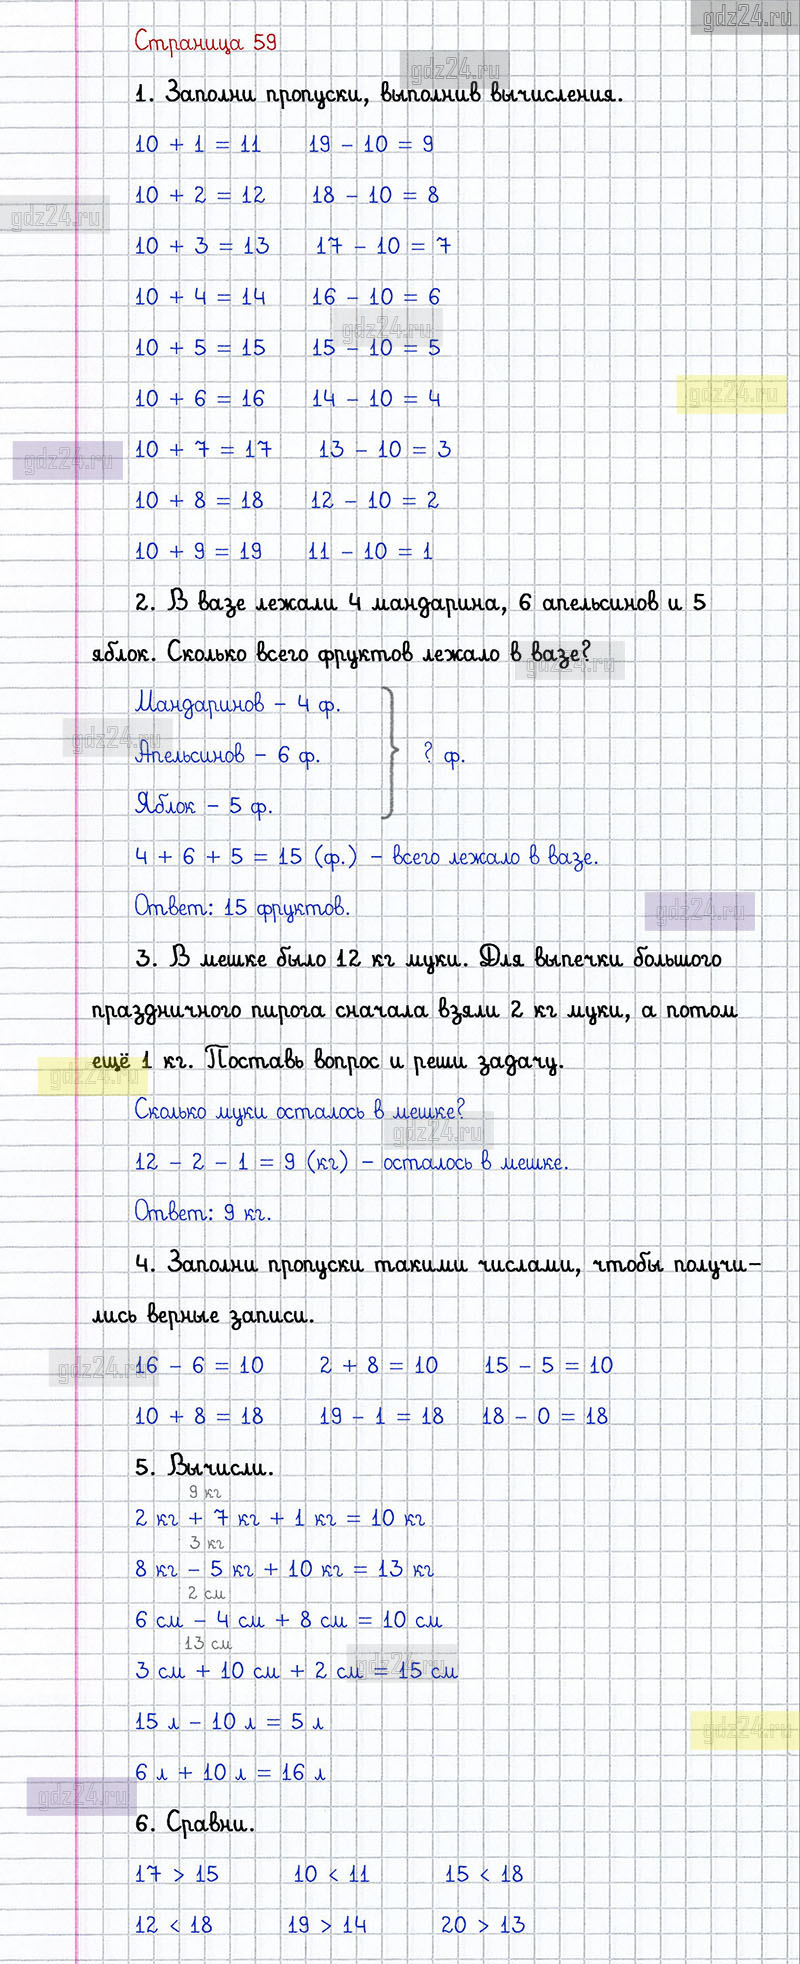 gdz24.ru
Страница 59
gdz24.ru
1. Заполни пропуски, выполнив вычисления.
10 + 1 = 11 19 - 10 = 9
10 + 2 = 12 18 - 10 = 8
gdz24.ru
10 + 3 = 13 17 - 10 = 7
10 + 4 = 14 16 - 10 = 6
gdz24.ru
10 + 5 = 15 15 - 10 = 5
10 + 6 = 16 14 - 10 = 4
gdz24.ru
10 + 7 = 17 13 - 10 = 3
gdz24.ru
10 + 8 = 18 12 - 10 = 2
10 + 9 = 19 11 - 10 = 1
2. В вазе лежали 4 мандарина, 6 апельсинов и 5
яблок. Сколько всего фруктов лежало в вазе?
gdz24.ru
Мандаринов - 4 ф.
gdz24.ru
Апельсинов - 6 ф. ? ф.
Яблок - 5 ф.
4 + 6 + 5 = 15 (ф.) - всего лежало в вазе.
Ответ: 15 фруктов.
gdz24.ru
3. В мешке было 12 кг муки. Для выпечки большого
праздничного пирога сначала взяли 2 кг муки, а потом
ещё 1 кг. Поставь вопрос и реши задачу.
gdz24.ru
Сколько муки осталось в мешке?
gdz24.ru
12 - 2 - 1 = 9 (кг) - осталось в мешке.
Ответ: 9 кг.
4. Заполни пропуски такими числами, чтобы получи-
лись верные записи.
gdz24.ru
16 - 6 = 10 2 + 8 = 10 15 - 5 = 10
10 + 8 = 18 19 - 1 = 18 18 - 0 = 18
5. Вычисли.
9 кг
2 кг + 7 кг + 1 кг = 10 кг
3 кг
8 кг - 5 кг + 10 кг = 13 кг
2 см
6 см - 4 см + 8 см = 10 см
13 см
gdz24.ru
3 см + 10 см + 2 см = 15 см
15 л - 10 л = 5 л
gdz24.ru
6 л + 10 л = 16 л
gdz24.ru
6. Сравни.
17 > 15 10 < 11 15 < 18
12 < 18 19 > 14 20 > 13